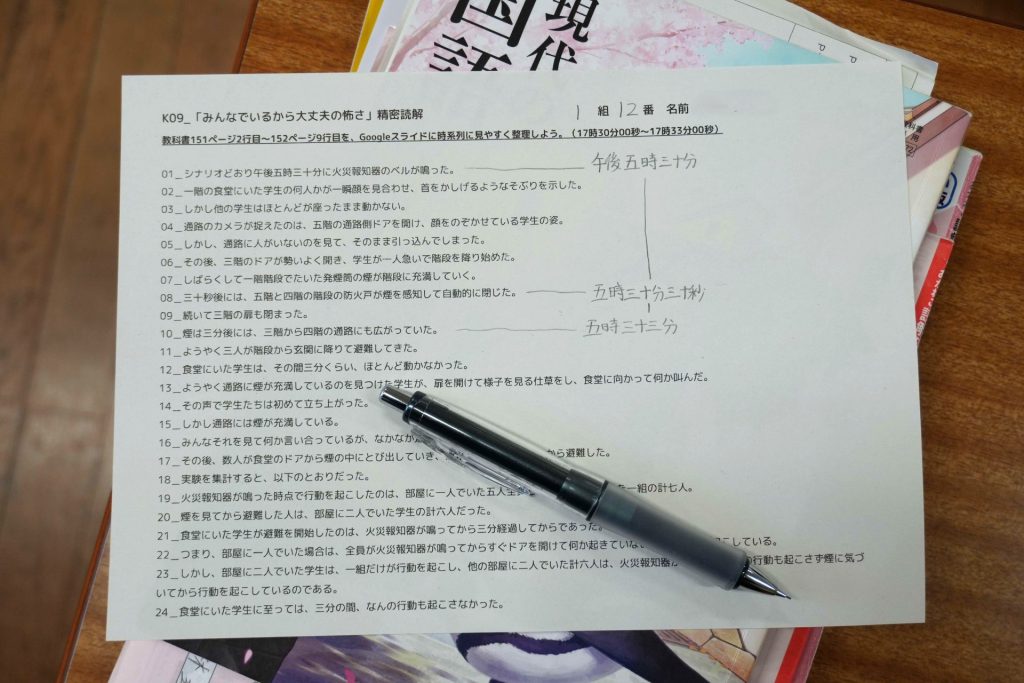 現代
国語
K09_「みんなでいるから大丈夫の怖さ」精密読解
1 組 12 番 名前
教科書151ページ2行目～152ページ9行目を、Googleスライドに時系列に見やすく整理しよう。（17時30分00秒～17時33分00秒）
01_シナリオどおり午後五時三十分に火災報知器のベルが鳴った。 午後五時三十分
02_一階の食堂にいた学生の何人かが一瞬顔を見合わせ、首をかしげるようなそぶりを示した。
03_しかし他の学生はほとんどが座ったまま動かない。
04_通路のカメラが捉えたのは、五階の通路側ドアを開け、顔をのぞかせている学生の姿。
05_しかし、通路に人がいないのを見て、そのまま引っ込んでしまった。
06_その後、三階のドアが勢いよく開き、学生が一人急いで階段を降り始めた。
07_しばらくして一階階段でたいた発煙筒の煙が階段に充満していく。
08_三十秒後には、五階と四階の階段の防火戸が煙を感知して自動的に閉じた。 五時三十分三十秒
09_続いて三階の扉も閉まった。
10_煙は三分後には、三階から四階の通路にも広がっていた。 五時三十三分
11_ようやく三人が階段から玄関に降りて避難してきた。
12_食堂にいた学生は、その間三分くらい、ほとんど動かなかった。
13_ようやく通路に煙が充満しているのを見つけた学生が、扉を開けて様子を見る仕草をし、食堂に向かって何か叫んだ。
14_その声で学生たちは初めて立ち上がった。
15_しかし通路には煙が充満している。
16_みんなそれを見て何か言い合っているが、なかなか
17_その後、数人が食堂のドアから煙の中にとび出していき、 から避難した。
18_実験を集計すると、以下のとおりだった。
19_火災報知器が鳴った時点で行動を起こしたのは、部屋に一人でいた五人全 一組の計七人。
20_煙を見てから避難した人は、部屋に二人でいた学生の計六人だった。
21_食堂にいた学生が避難を開始したのは、火災報知器が鳴ってから三分経過してからであった。
22_つまり、部屋に一人でいた場合は、全員が火災報知器が鳴ってからすぐドアを開けて何か起きていない こしている。
23_しかし、部屋に二人でいた学生は、一組だけが行動を起こし、他の部屋に二人でいた計六人は、火災報知器が の行動も起こさず煙に気づ
いてから行動を起こしているのである。
24_食堂にいた学生に至っては、三分の間、なんの行動も起こさなかった。